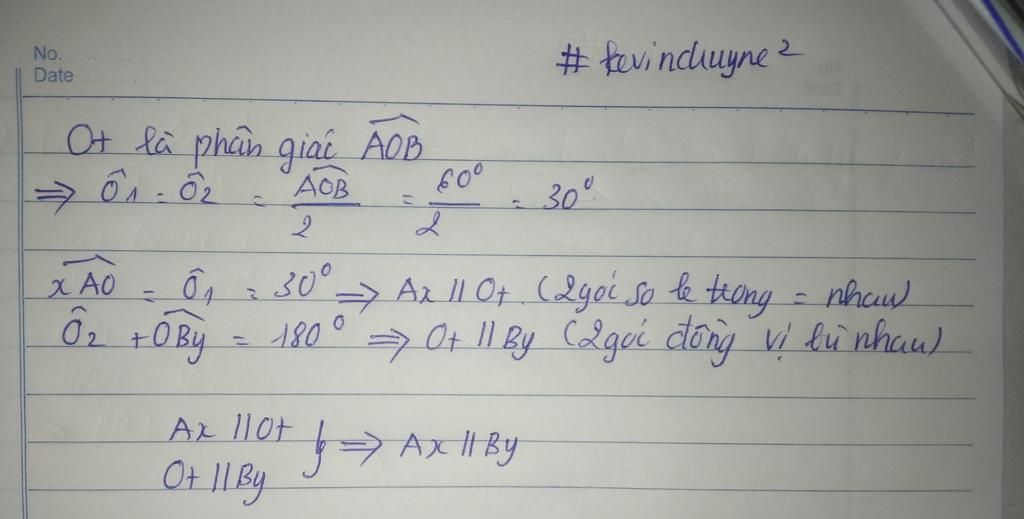 No.
Date
# kevinchuyne²
Ot là phân giác AOB
⇒ Ô1 = Ô2 = AOB/2 = 60°/2 = 30°
xAO = Ô1 = 30° ⇒ Ax // Ot (2 góc so le trong = nhau)
Ô2 + OBy = 180° ⇒ Ot // By (2 góc đồng vị bù nhau)
Ax // Ot
} ⇒ Ax // By
Ot // By